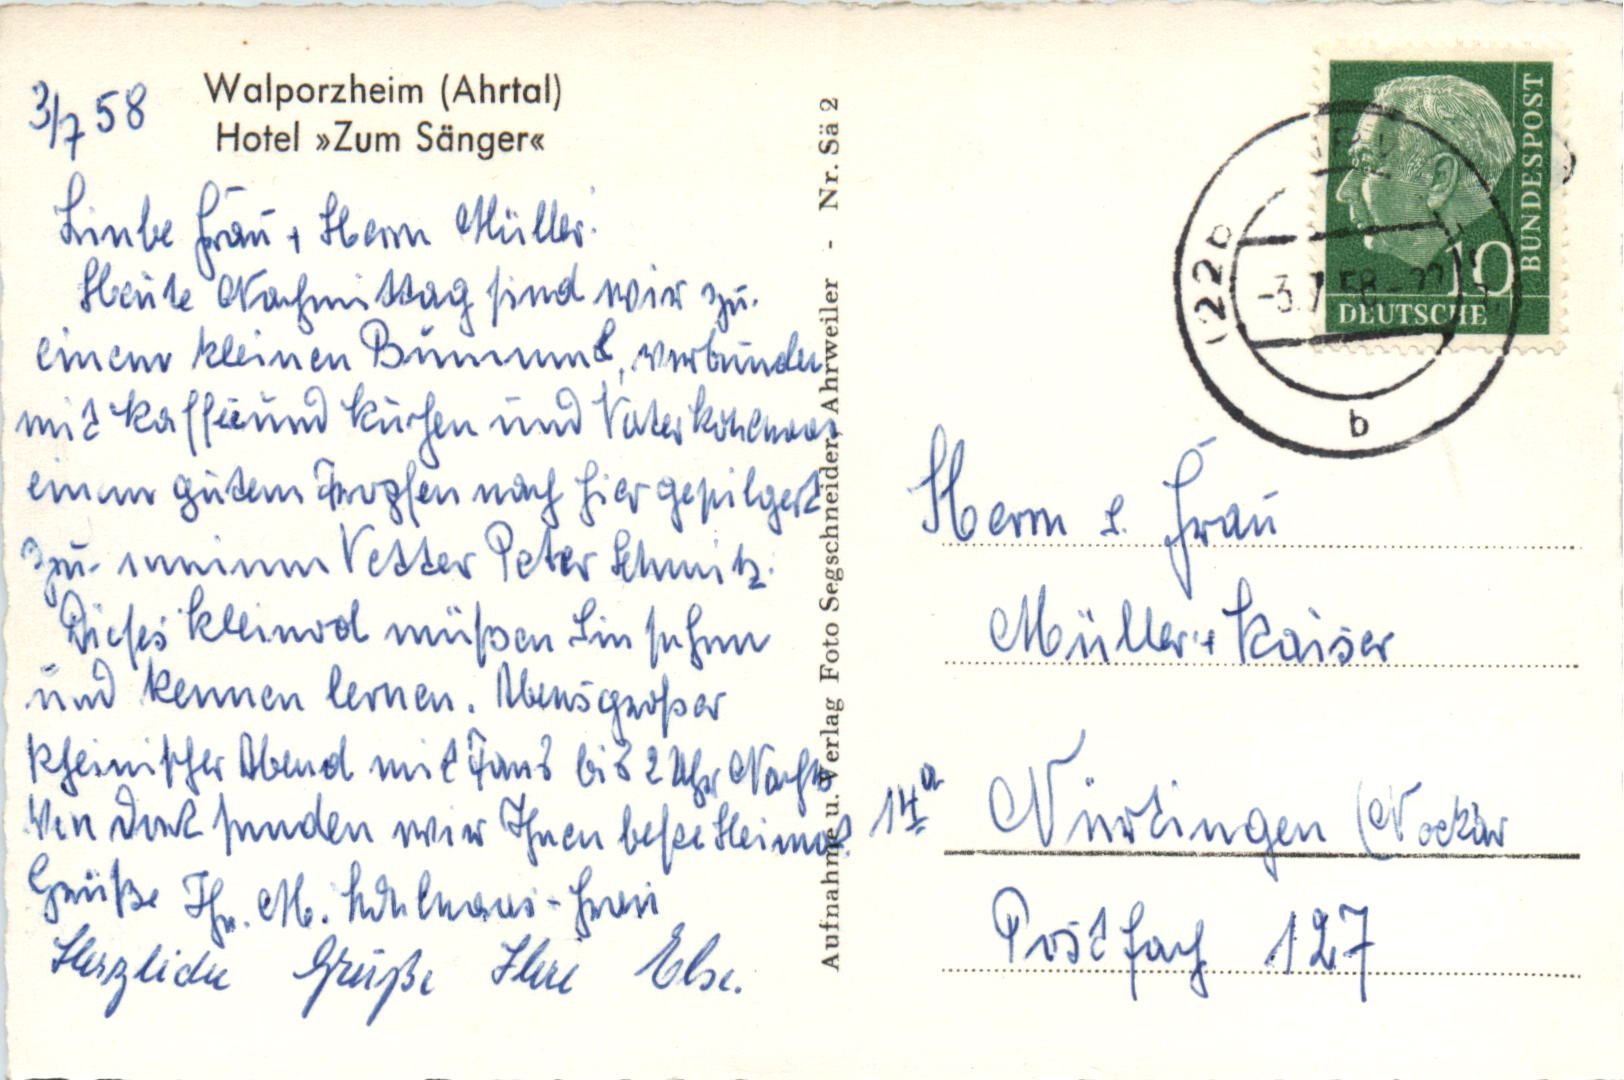 3/7 58
Walporzheim (Ahrtal)
Hotel »Zum Sänger«
Liebe Frau + Herrn Müller.
Heute Nachmittag sind wir zu
einem kleinen Bummel, verbunden
mit Kaffee und Kuchen und Vater
einem gutem Tropfen nach hier gepilgert
zu meinem Vetter Peter Schmitz.
Dieses Kleinod müßen Sie sehen
und kennen lernen.
Rheinischer Abend mit Tanz bis 2 Uhr Nachts
Von dort senden wir Ihnen beste Heimat
Grüße Ihr. M.
Herzliche Grüße Ihre Else.
Aufnahme u. Verlag Foto Segschneider, Ahrweiler - Nr. Sä 2
DEUTSCHE BUNDESPOST
10
(22b
-3.7.58-
b
Herrn u. Frau
Müller + Kaiser
14a Nürtingen (Neckar
Postfach 127